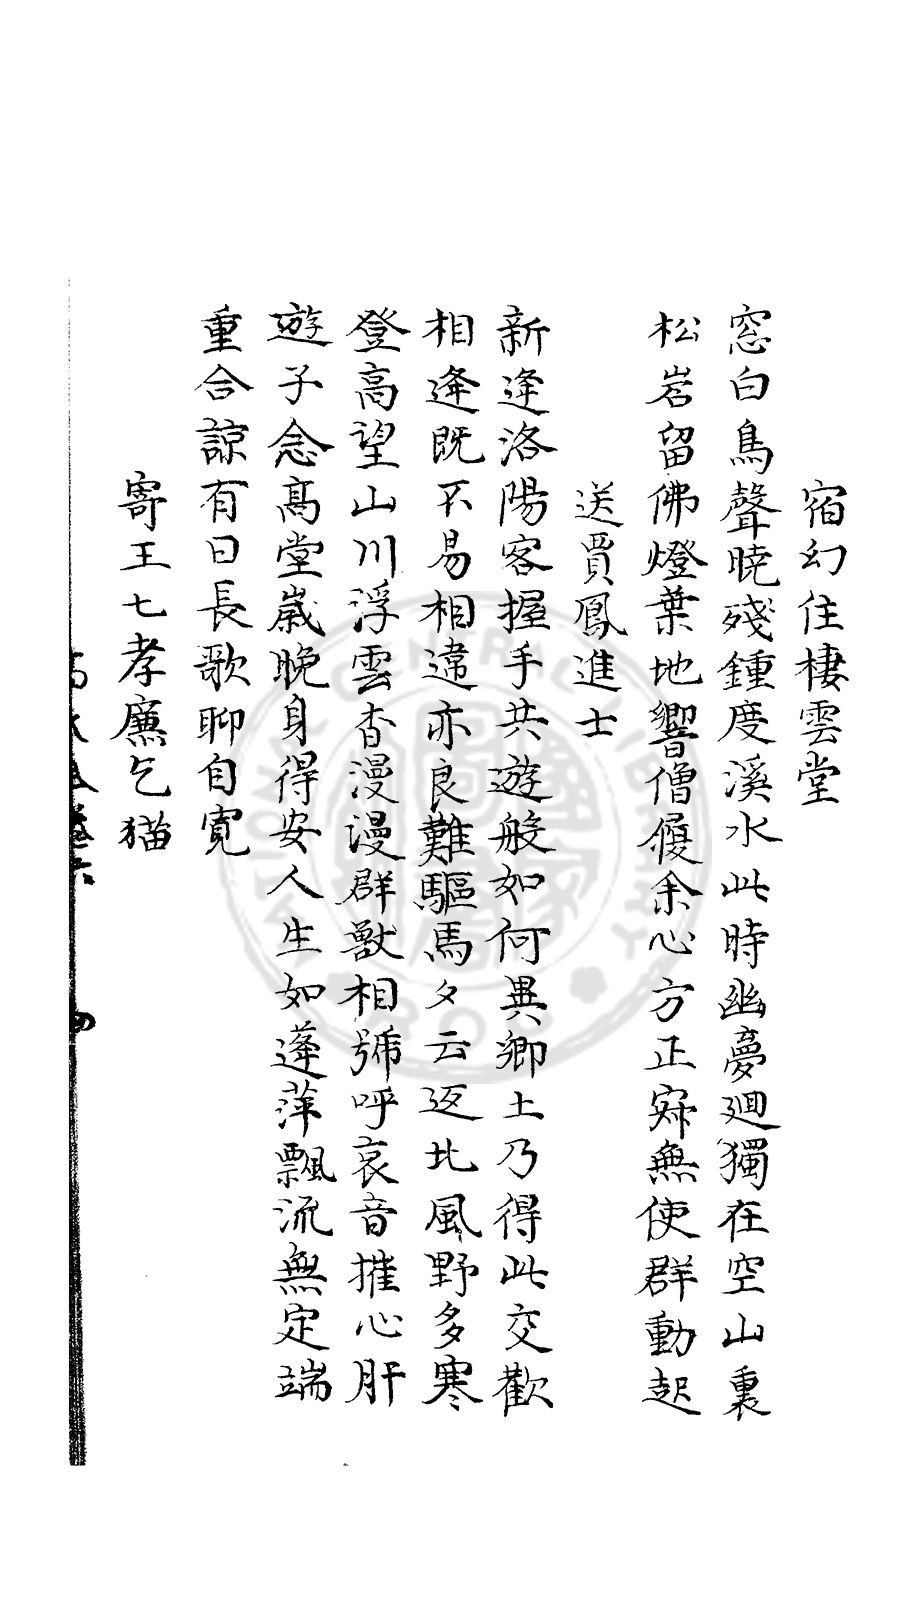 宿幻住棲雲堂
窓白鳥聲曉殘鍾度溪水此時幽夢廻獨在空山裏
松岩留佛燈葉地響僧履余心方正寂無使群動起
送賈鳳進士
新逢洛陽客握手共遊般如何異鄉土乃得此交歡
相逢既不易相違亦良難驅馬夕云返北風野多寒
登高望山川浮雲杳漫漫群獸相號呼哀音摧心肝
遊子念高堂歲晚身得安人生如蓬萍飄流無定端
重合諒有日長歌聊自寬
寄王七孝廉乞猫